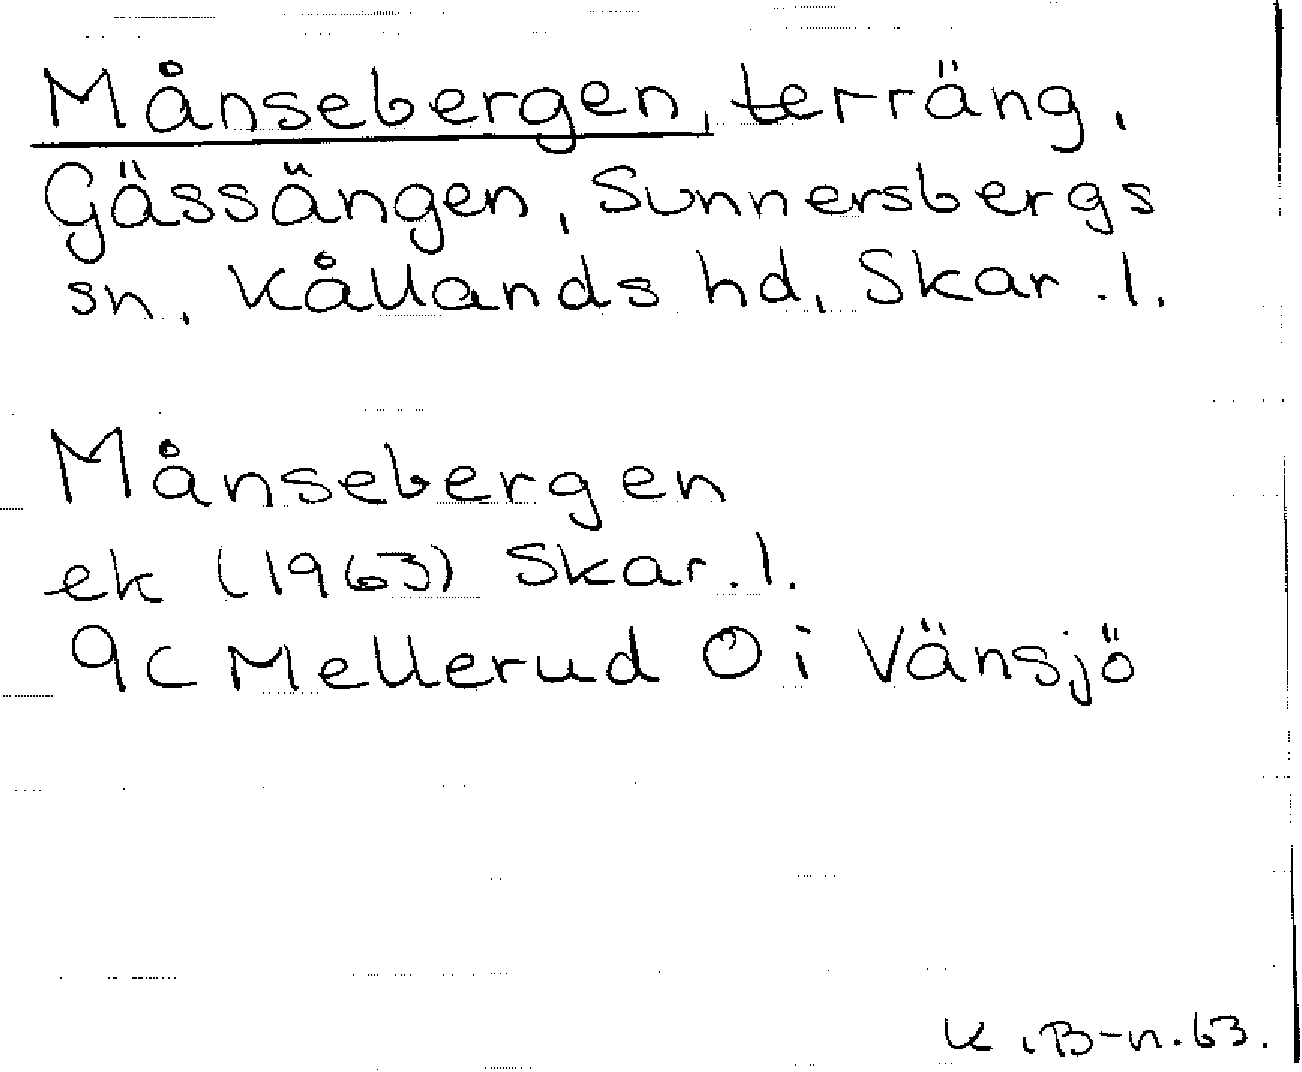 Månsebergen, terräng,
Gässängen, Sunnersbergs
sn, Kållands hd, Skar.l.
Månsebergen
ek (1963) Skar.l.
9c Mellerud Ö i Vänsjö
K.B-n.63.